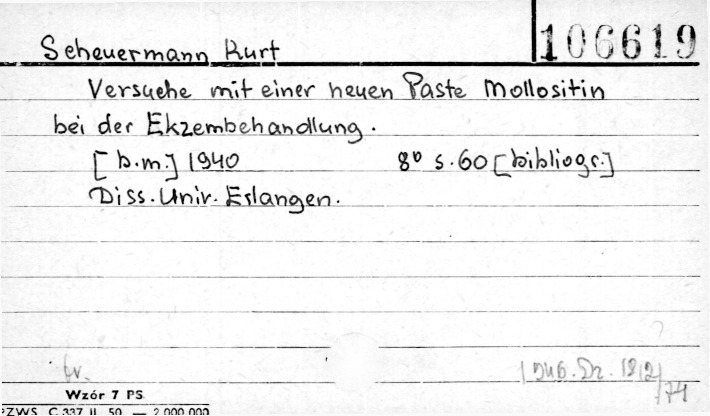 Scheuermann Kurt 106619
Versuche mit einer neuen Paste Mollositin
bei der Ekzembehandlung.
[b.m.] 1940 8° s. 60 [bibliogr.]
Diss. Univ. Erlangen.
Wzór 7 PS
PZWS C 337 II. 50. — 2.000.000